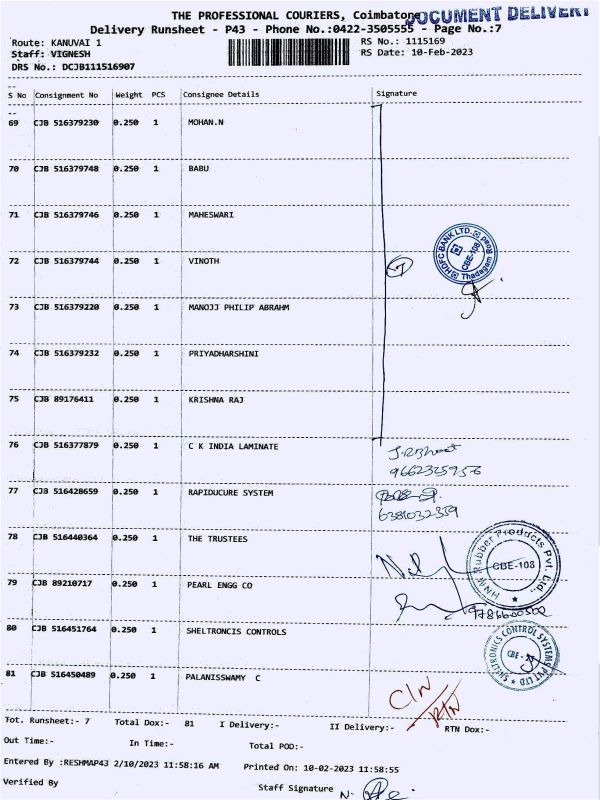 THE PROFESSIONAL COURIERS, Coimbatore
DOCUMENT DELIVERY
Delivery Runsheet - P43 - Phone No.:0422-3505555 - Page No.:7
Route: KANUVAI 1
RS No.: 1115169
Staff: VIGNESH
RS Date: 10-Feb-2023
DRS No.: DCJB111516907
S No Consignment No Weight PCS Consignee Details Signature
69 CJB 516379230 0.250 1 MOHAN.N
70 CJB 516379748 0.250 1 BABU
71 CJB 516379746 0.250 1 MAHESWARI
72 CJB 516379744 0.250 1 VINOTH
HDFC BANK LTD. Thadagam Road
CBE-108
7
73 CJB 516379220 0.250 1 MANOJJ PHILIP ABRAHM
74 CJB 516379232 0.250 1 PRIYADHARSHINI
75 CJB 89176411 0.250 1 KRISHNA RAJ
76 CJB 516377879 0.250 1 C K INDIA LAMINATE
77 CJB 516428659 0.250 1 RAPIDUCURE SYSTEM
6381032359
78 CJB 516440364 0.250 1 THE TRUSTEES
Rubber Products Pvt. Ltd.,
CBE-108
79 CJB 89210717 0.250 1 PEARL ENGG CO
80 CJB 516451764 0.250 1 SHELTRONCIS CONTROLS
SHELTRONICS CONTROL SYSTEMS PVT LTD
CBE
81 CJB 516450489 0.250 1 PALANISSWAMY C
C/N
RTN
Tot. Runsheet:- 7 Total Dox:- 81 I Delivery:- II Delivery:- RTN Dox:-
Out Time:- In Time:- Total POD:-
Entered By :RESHMAP43 2/10/2023 11:58:16 AM Printed On: 10-02-2023 11:58:55
Verified By Staff Signature